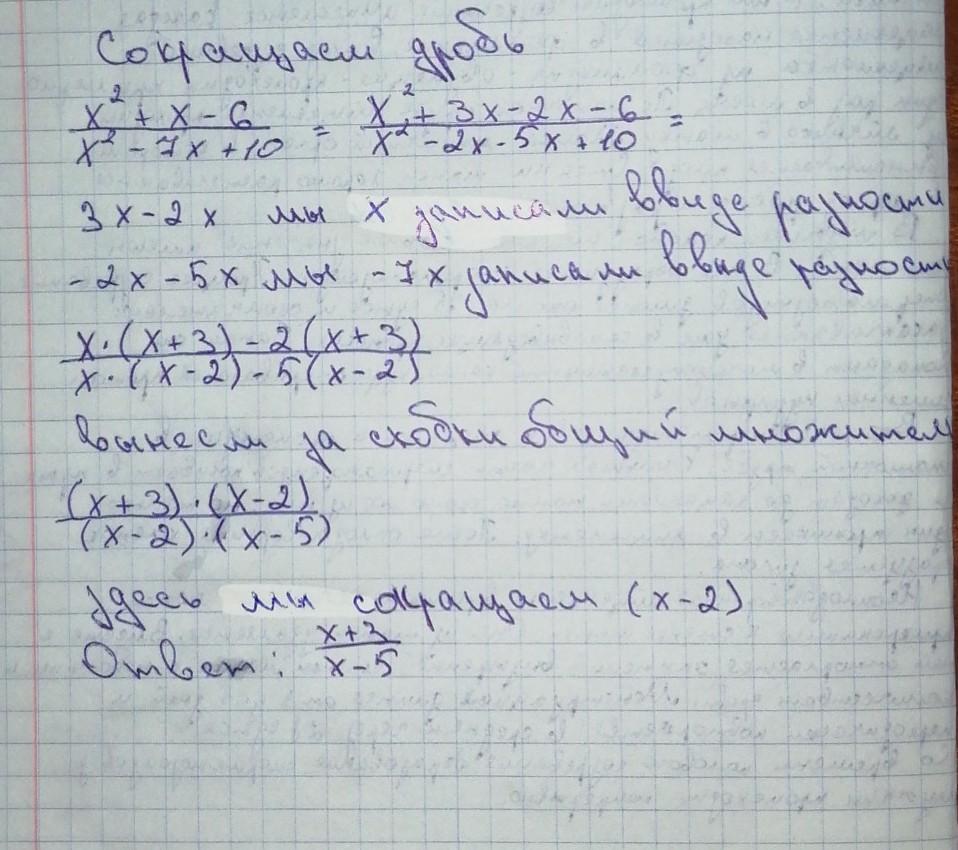 Сокращаем дробь
x² + x - 6 / x² - 7x + 10 = x² + 3x - 2x - 6 / x² - 2x - 5x + 10 =
3x - 2x мы x записали ввиде разности
- 2x - 5x мы - 7x записали ввиде разности
x·(x+3) - 2(x+3) / x·(x-2) - 5(x-2)
вынесли за скобки общий множитель
(x+3)·(x-2) / (x-2)·(x-5)
здесь мы сокращаем (x-2)
Ответ: x+3 / x-5